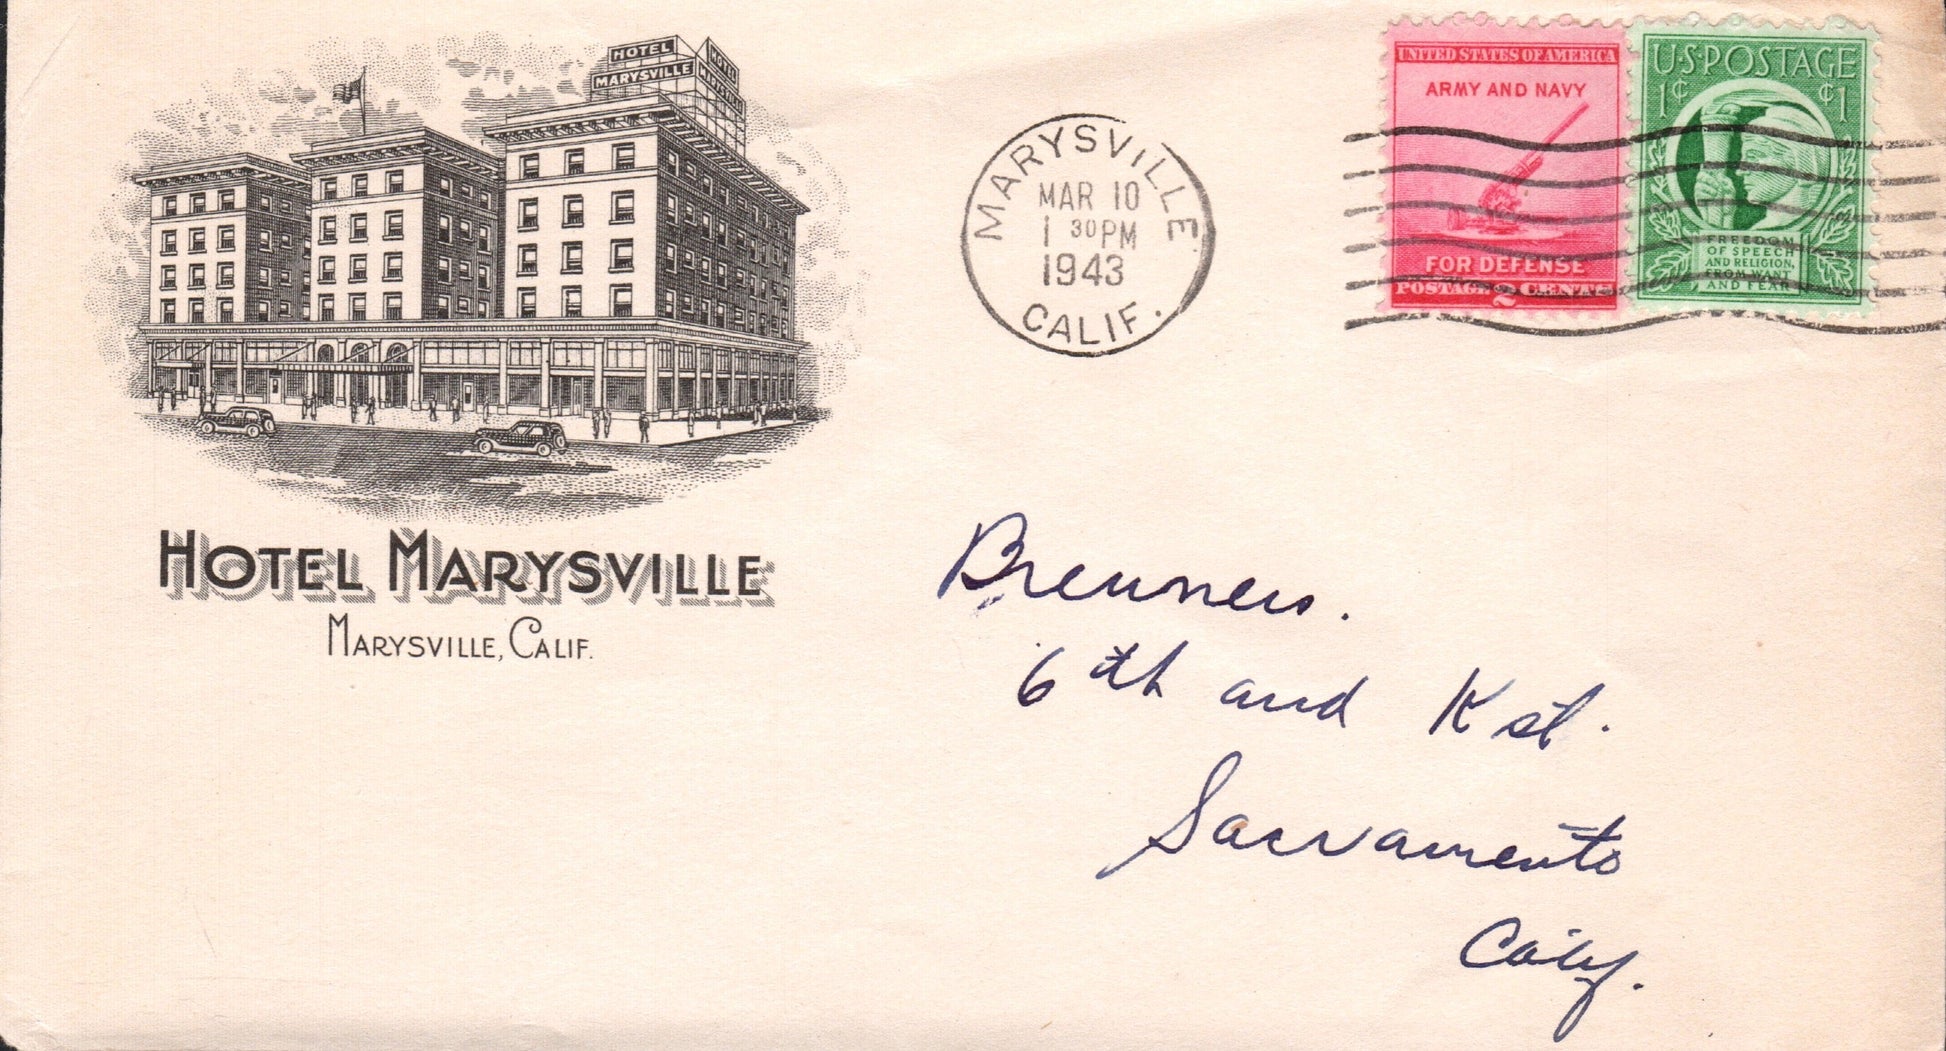 HOTEL
MARYSVILLE
HOTEL
MARYSVILLE
HOTEL MARYSVILLE
MARYSVILLE, CALIF.
MARYSVILLE
MAR 10
1 30 PM
1943
CALIF.
UNITED STATES OF AMERICA
ARMY AND NAVY
FOR DEFENSE
POSTAGE 2 CENTS
U·S·POSTAGE
1¢ ¢1
FREEDOM
OF SPEECH
AND RELIGION,
FROM WANT
AND FEAR
Brenners.
6th and K st.
Sacramento
Calif.